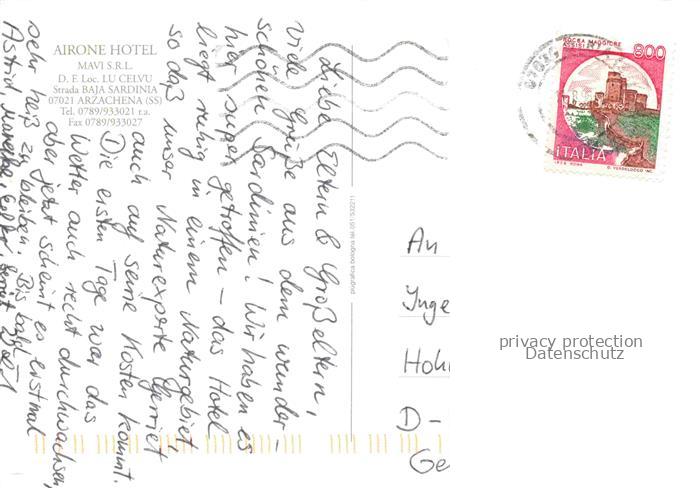 AIRONE HOTEL
MAVI S.R.L.
D. F. Loc. LU CELVU
Strada BAJA SARDINIA
07021 ARZACHENA (SS)
Tel. 0789/933021 r.a.
Fax 0789/933027
Liebe Eltern & Großeltern,
viele Grüße aus dem wunder-
schönen Sardinien! Wir haben es
hier super getroffen - das Hotel
liegt ruhig in einem Naturgebiet,
so daß unser Naturexperte Gerriet
auch auf seine Kosten kommt.
Die ersten Tage war das
Wetter auch recht durchwachsen,
aber jetzt scheint es erstmal
sehr heiß zu bleiben. Bis bald
Astrid,
plugrafica bologna tel.051/532211
ROCCA MAGGIORE
ASSISI
800
ITALIA
An
Inge
Hohl
D-
Ge
privacy protection
Datenschutz